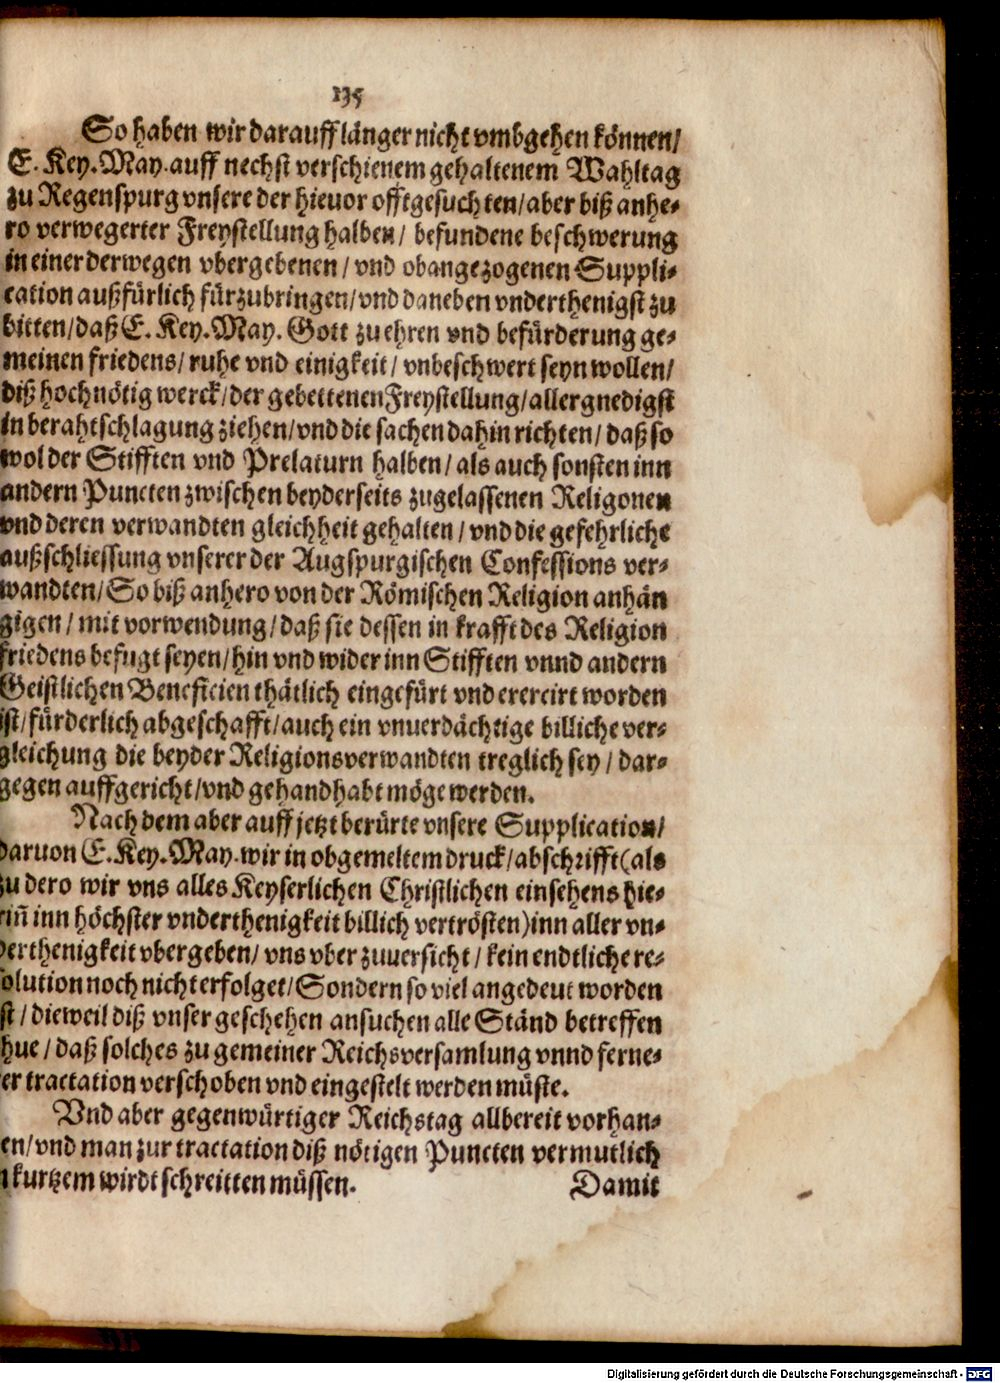 135
So haben wir darauff länger nicht vmbgehen können/
E. Key. May. auff nechst verschienem gehaltenem Wahltag
zu Regenspurg vnsere der hieuor offtgesuchten/ aber biß anhe-
ro verwegerter Freystellung halben/ befundene beschwerung
in einer derwegen vbergebenen/ vnd obangezogenen Suppli-
cation außfürlich fürzubringen/ vnd daneben vnderthenigst zu
bitten/ daß E. Key. May. Gott zu ehren vnd befürderung ge-
meinen friedens/ ruhe vnd einigkeit/ vnbeschwert seyn wollen/
diß hochnötig werck/ der gebettenen Freystellung/ allergnedigst
in berahtschlagung ziehen/ vnd die sachen dahin richten/ daß so
wol der Stifften vnd Prelaturn halben/ als auch sonsten inn
andern Puncten zwischen beyderseits zugelassenen Religonen
vnd deren verwandten gleichheit gehalten/ vnd die gefehrliche
außschliessung vnserer der Augspurgischen Confessions ver-
wandten/ So biß anhero von der Römischen Religion anhän
gigen/ mit vorwendung/ daß sie dessen in krafft des Religion
friedens befugt seyen/ hin vnd wider inn Stifften vnnd andern
Geistlichen Beneficien thätlich eingefürt vnd exerciert worden
ist/ fürderlich abgeschafft/ auch ein vnuerdächtige billiche ver-
gleichung die beyder Religionsverwandten treglich sey/ dar-
gegen auffgericht/ vnd gehandhabt möge werden.
Nach dem aber auff jetzt berürte vnsere Supplication/
daruon E. Key. May. wir in obgemeltem druck/ abschrifft (als
zu dero wir vns alles Keyserlichen Christlichen einsehens hie-
rin̄ inn höchster vnderthenigkeit billich vertrösten) inn aller vn-
derthenigkeit vbergeben/ vns vber zuuersicht/ kein endtliche re-
solution noch nicht erfolget/ Sondern so viel angedeut worden
st/ dieweil diß vnser geschehen ansuchen alle Ständ betreffen
hue/ daß solches zu gemeiner Reichsversamlung vnnd ferne-
er tractation verschoben vnd eingestelt werden müste.
Vnd aber gegenwürtiger Reichstag allbereit vorhan-
en/ vnd man zur tractation diß nötigen Puncten vermutlich
n kurtzem wirdt schreitten müssen. Damit
Digitalisierung gefördert durch die Deutsche Forschungsgemeinschaft - DFG